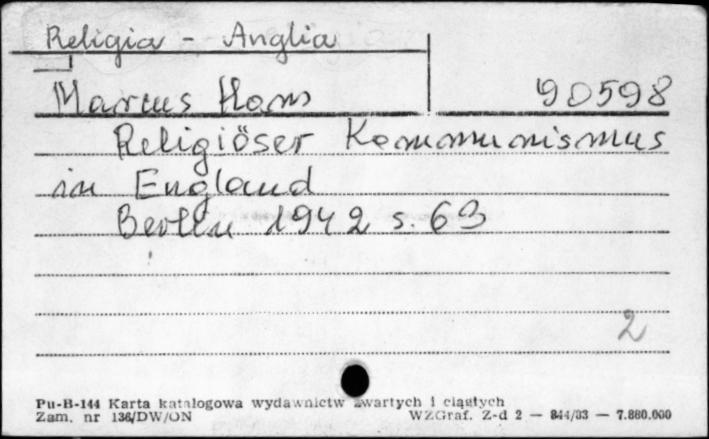 Religia - Anglia
Marcus Hans 90598
Religiöser Kommunismus
in England
Berlin 1942 s. 63
2
Pu-B-144 Karta katalogowa wydawnictw zwartych i ciągłych
Zam. nr 136/DW/ON WZGraf. Z-d 2 — 844/83 — 7.880.000